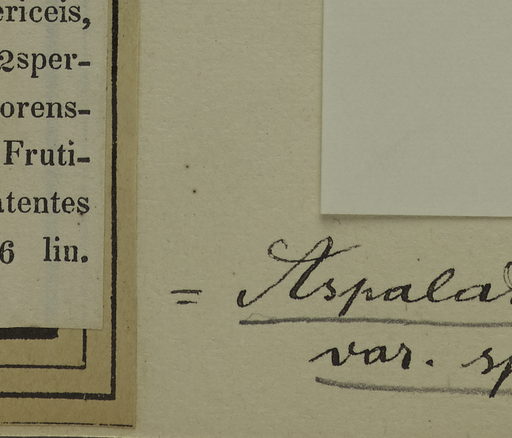 ericeis,
2sper-
orens-
Fruti-
atentes
6 lin.
= Aspala
var. sp